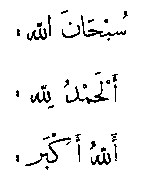 سُبْحَانَ اللّٰه :
أَلْحَمْدُ لِلّٰه :
أَللّٰهُ أَكْبَر :